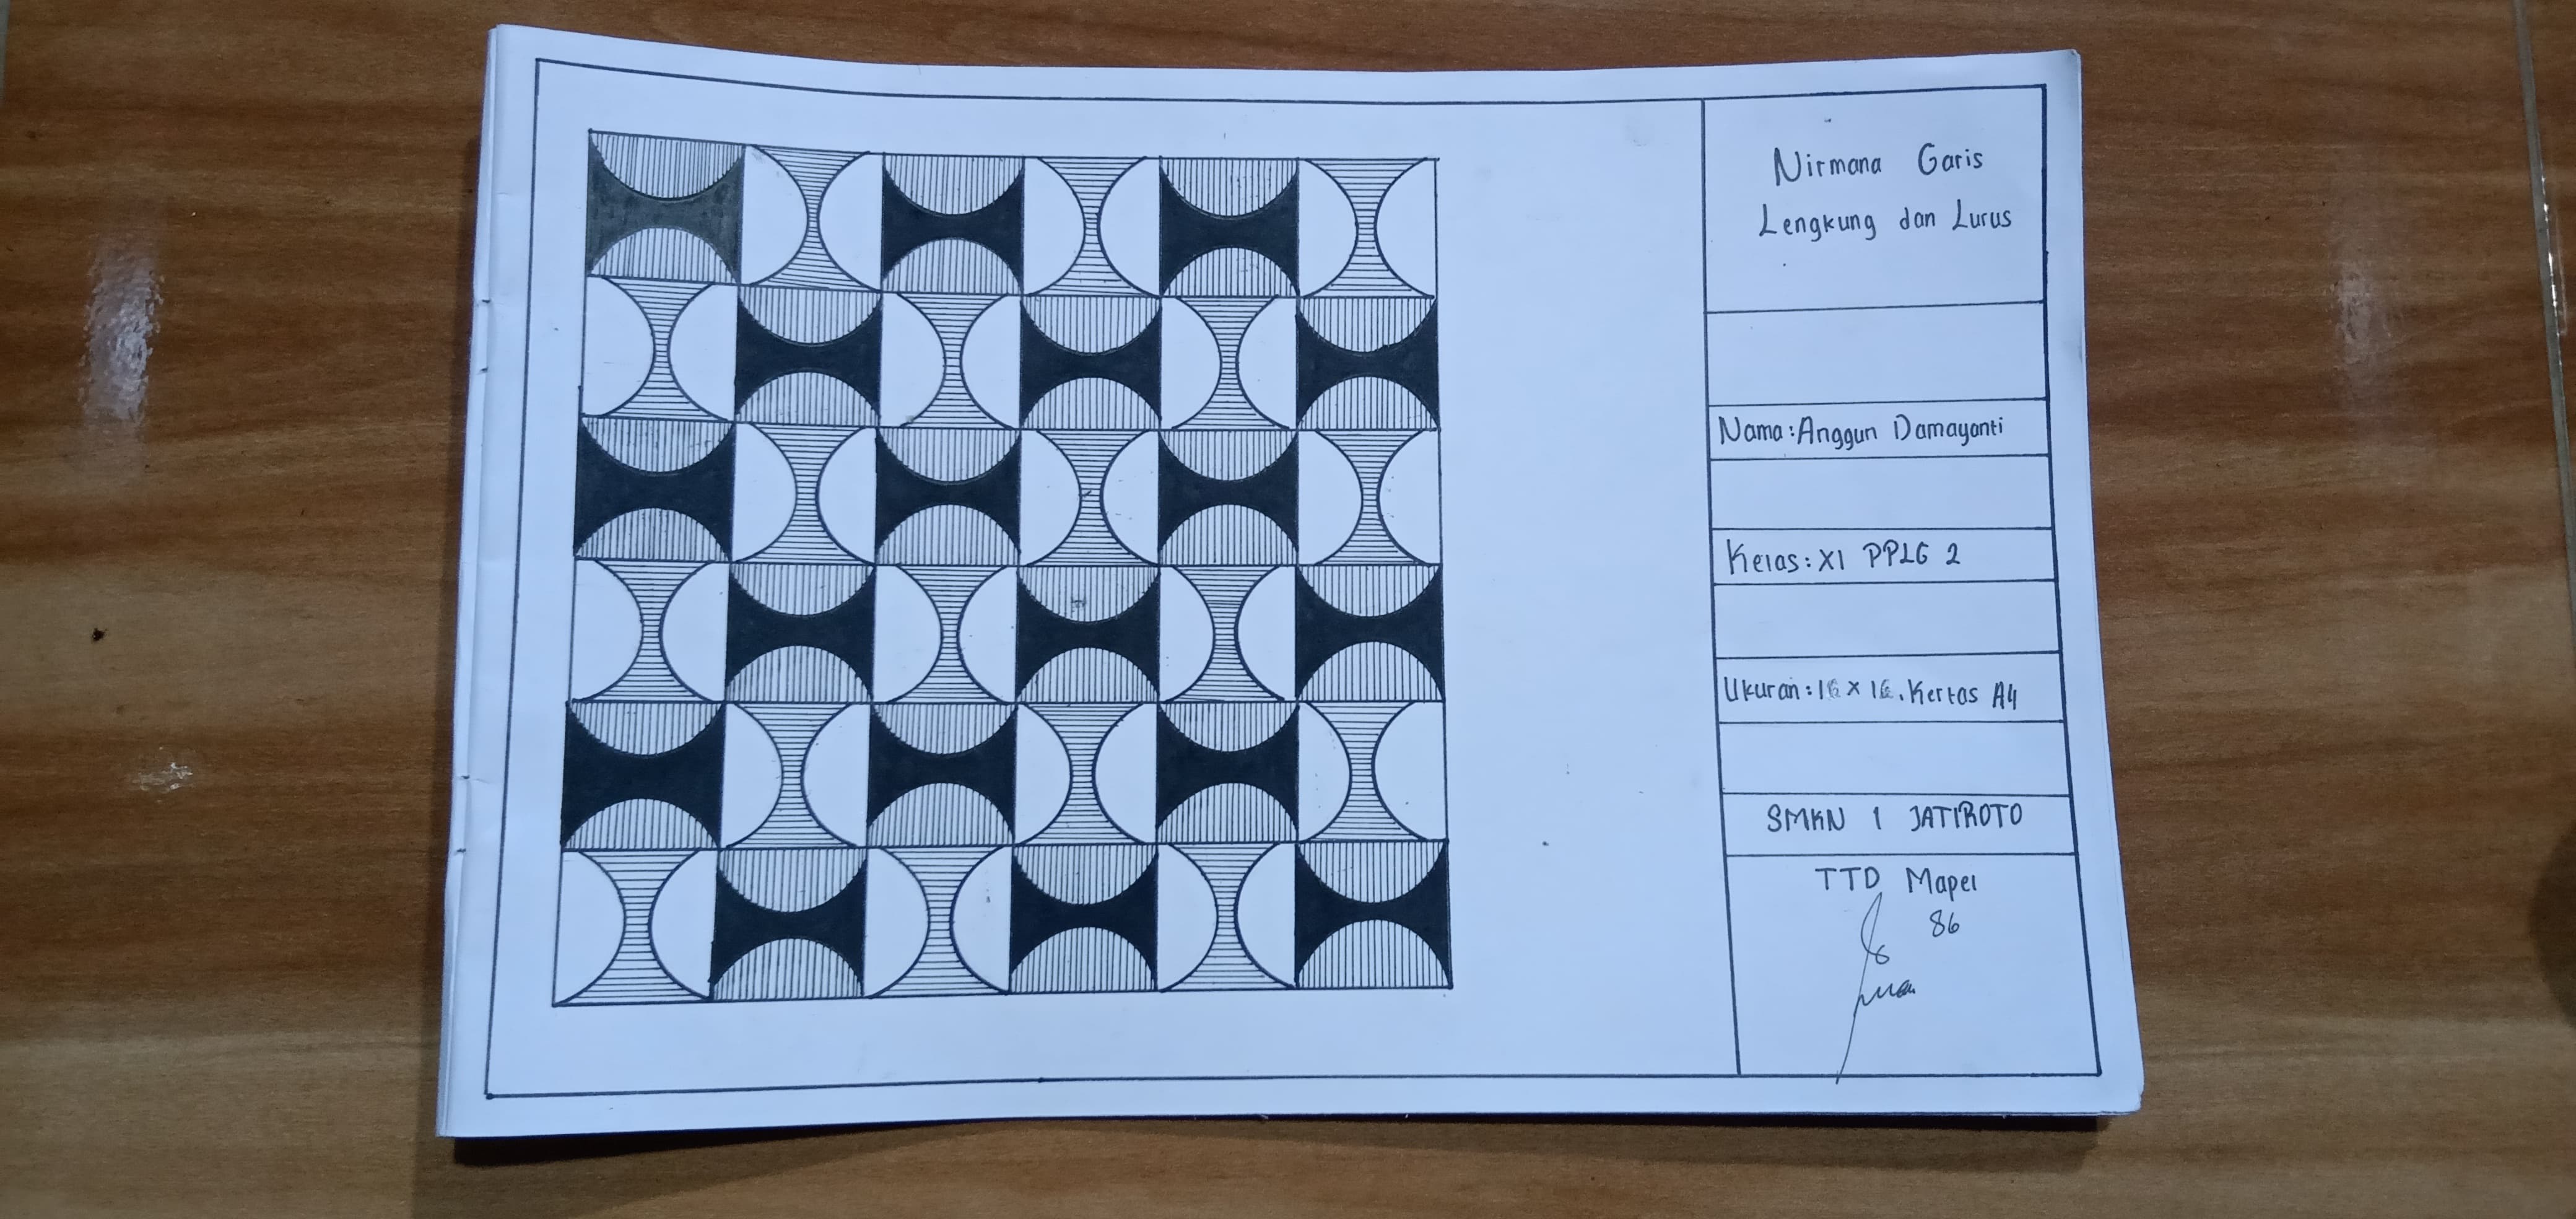 Nirmana Garis
Lengkung dan Lurus
Nama : Anggun Damayanti
Kelas : XI PPLG 2
Ukuran : 16 x 16 . Kertas A4
SMKN 1 JATIROTO
TTD Mapel
86